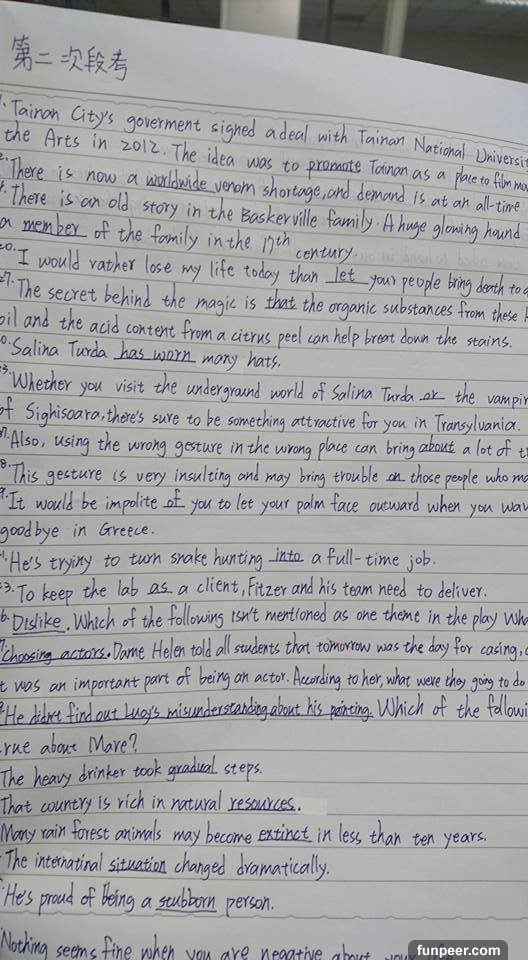 第二次段考
1. Tainan City's goverment signed a deal with Tainan National
the Arts in 2012. The idea was to promote Tainan as a place to film
There is now a worldwide venom shortage, and demand is at an all-time
There is an old story in the Baskerville family. A huge glowing hound
a member of the family in the 17th century.
I would rather lose my life today than let your people bring death to
The secret behind the magic is that the organic substances from these
oil and the acid content from a citrus peel can help breat down the stains.
Salina Turda has worn many hats.
Whether you visit the underground world of Salina Turda or the
of Sighisoara, there's sure to be something attractive for you in Transylvania.
Also, using the wrong gesture in the wrong place can bring about a lot of
8. This gesture is very insulting and may bring trouble on those people who
It would be impolite of you to let your palm face outward when you
goodbye in Greece.
He's trying to turn snake hunting into a full-time job.
To keep the lab as a client, Fitzer and his team need to deliver.
Dislike. Which of the following isn't mentioned as one theme in the play
Choosing actors. Dame Helen told all students that tomorrow was the day for casing,
t was an important part of being an actor. According to her, what were they going to do
He didn't find out Luoy's misunderstanding about his painting. Which of the
rue about Mare?
The heavy drinker took gradual steps.
That country is rich in natural resources.
Many rain forest animals may become extinct in less than ten years.
The internatinal situation changed dramatically.
He's proud of being a stubborn person.
Nothing seems fine when you are negative about
funpeer.com